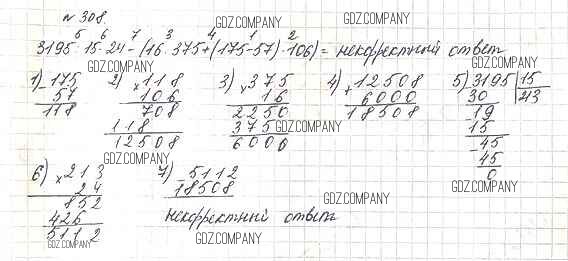 № 308.
GDZ.COMPANY GDZ.COMPANY
5 6 7 3 4 1 2
3195:15·24-(16·375+(175-57)·106)= некорректный ответ
GDZ.COMPANY GDZ.COMPANY
1) 175 2) 118 3) 375 4) 12508 5) 3195 | 15
- 57 × 106 × 16 + 6000 30 213
118 708 2250 18508 - 19
118 375 15
12508 6000 - 45
45
0
GDZ.COMPANY
GDZ.COMPANY GDZ.COMPANY
6) × 213 7) - 5112
24 18508
852 GDZ.COMPANY
426 некорректный ответ
5112
GDZ.COMPANY GDZ.COMPANY